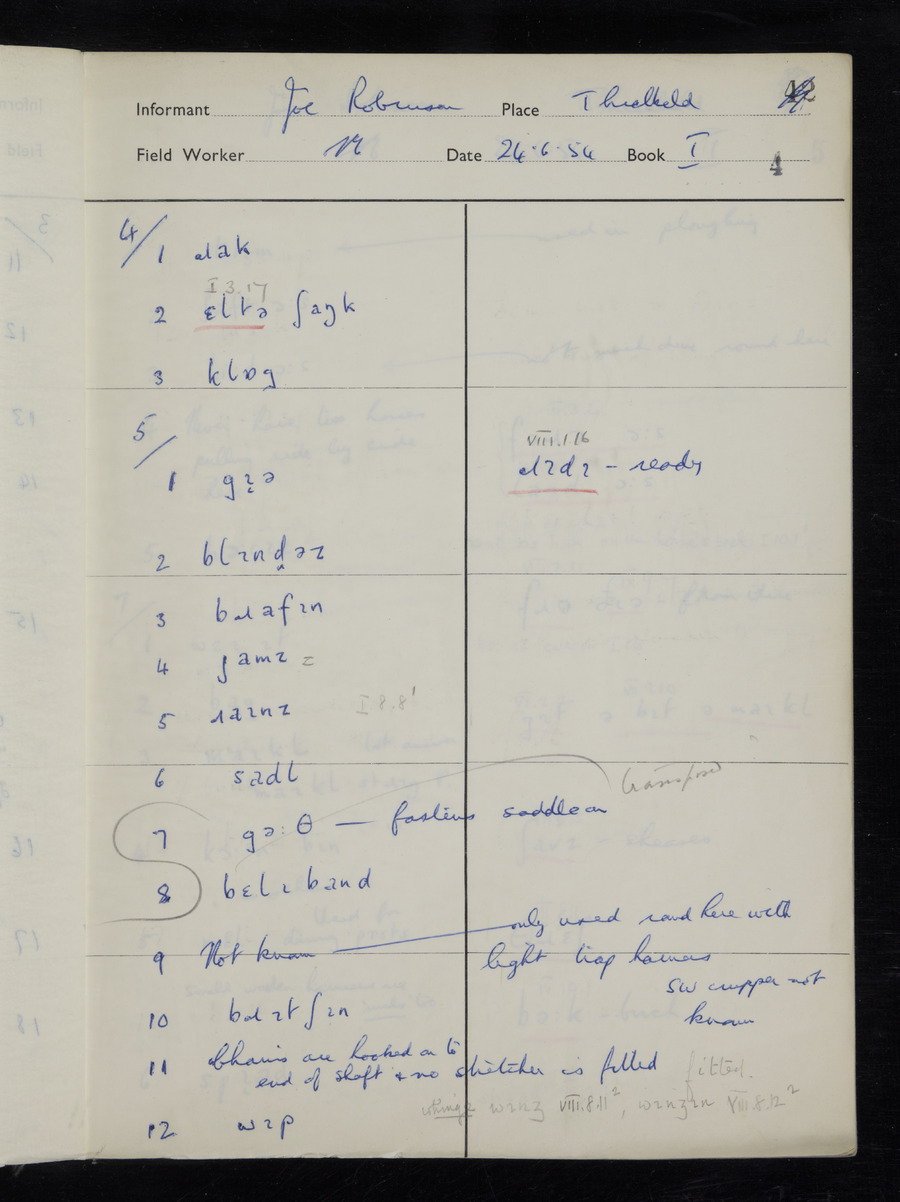 Informant Joe Robinson Place Threlkeld
Field Worker Date 24.6.54 Book I
4
4/
1 ɹak
I.3.17
2 ɛltə ʃaŋk
3 klɒg
5/
VIII.1.16
1 gɪə
ɹɪdɪ – ready
2 blɪndəz
3 bɹafɪn
4 jamz =
5 ɹaɪnz I 8.8'
6 sadl
transpose
7 gə:θ — fastens saddle on
8 bɛlɪband
only used round here with
9 Not known
light trap harness
SW crupper not
known
10 bɹɪtʃɪn
11 Chains are hooked on to
end of shaft & no stretcher is fitted fitted.
whinge wɪnʒ VIII.8.11², wɪnʒɪn VIII.8.12²
12 wɪp